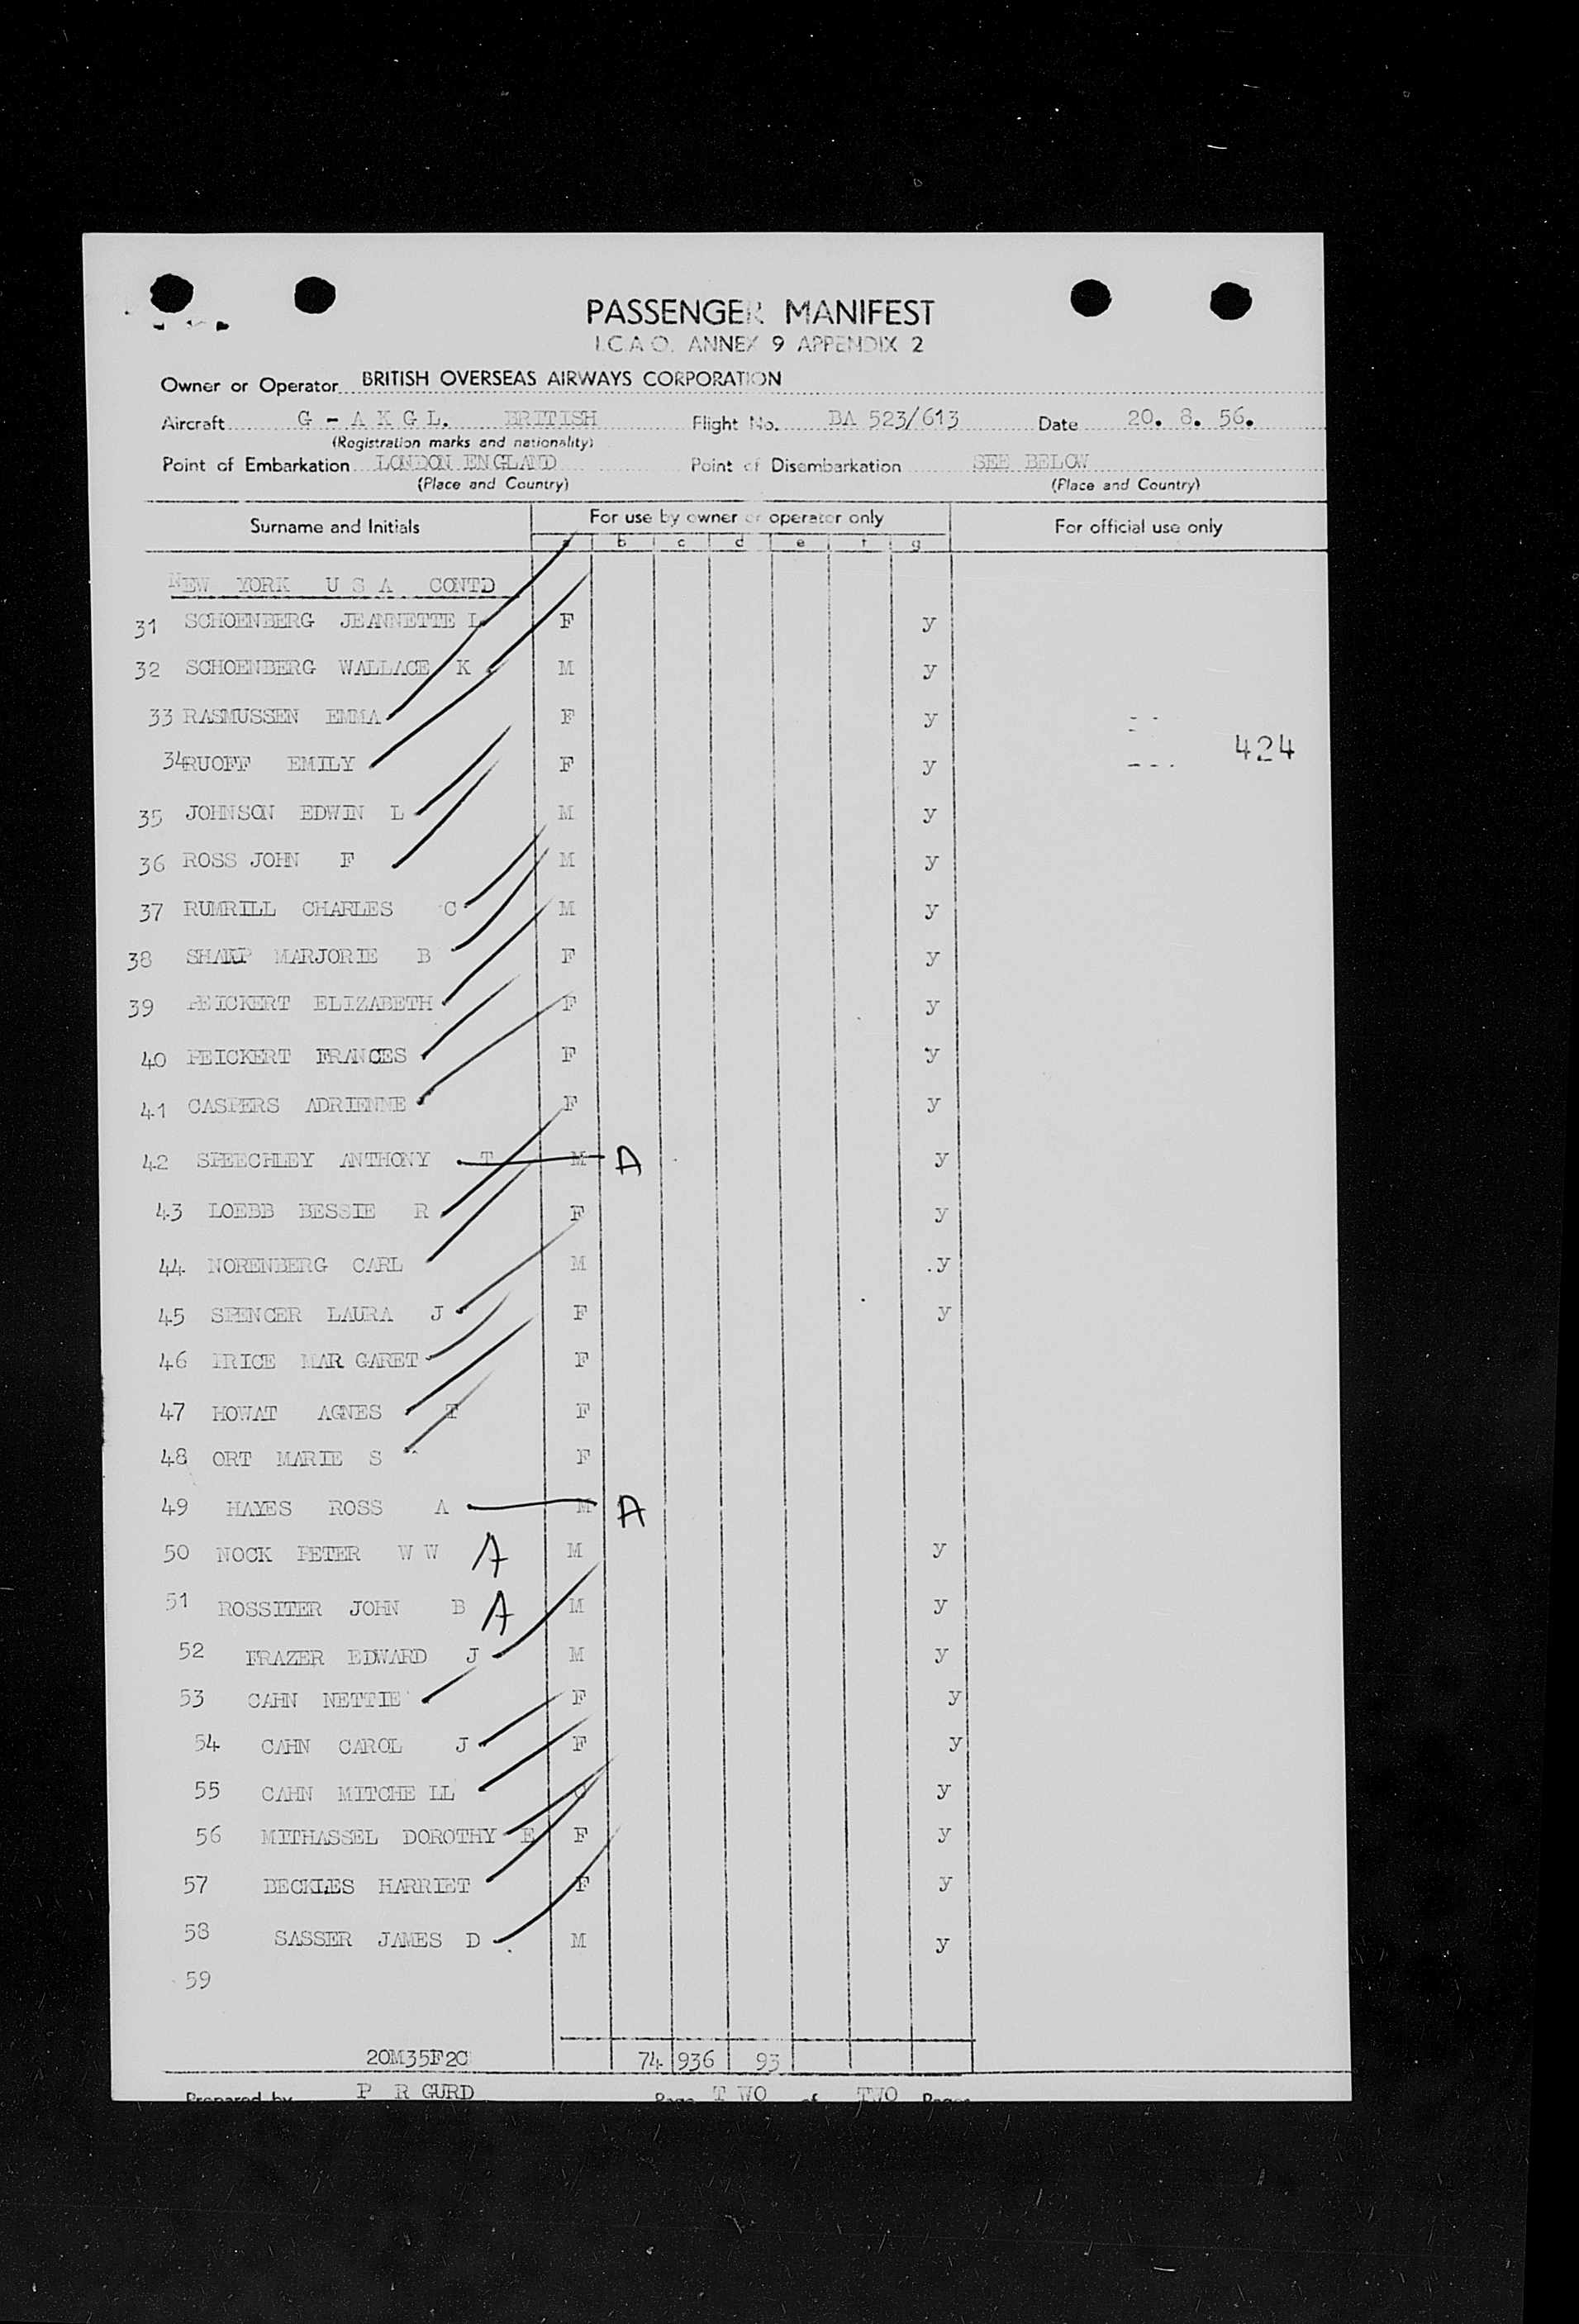 PASSENGER MANIFEST
I.C.A.O. ANNEX 9 APPENDIX 2
Owner or Operator BRITISH OVERSEAS AIRWAYS CORPORATION
Aircraft G - A K G L. BRITISH Flight No. BA 523/613 Date 20. 8. 56.
(Registration marks and nationality)
Point of Embarkation LONDON ENGLAND Point of Disembarkation SEE BELOW
(Place and Country) (Place and Country)
Surname and Initials For use by owner or operator only For official use only
a b c d e f g
NEW YORK U S A CONTD
31 SCHOENBERG JEANNETTE L F y
32 SCHOENBERG WALLACE K M y
33 RASMUSSEN EMMA F y
424
34 RUOFF EMILY F y
35 JOHNSON EDWIN L M y
36 ROSS JOHN F M y
37 RUMRILL CHARLES C M y
38 SHARP MARJORIE B F y
39 PEICKERT ELIZABETH F y
40 PEICKERT FRANCES F y
41 CASPERS ADRIENNE F y
42 SPEECHLEY ANTHONY T M A y
43 LOEBB BESSIE R F y
44 NORENBERG CARL M y
45 SPENCER LAURA J F y
46 PRICE MAR GARET F
47 HOWAT AGNES T F
48 ORT MARIE S F
49 HAYES ROSS A M A
50 NOCK PETER W W A M y
51 ROSSITER JOHN B A M y
52 FRAZER EDWARD J M y
53 CAHN NETTIE F y
54 CAHN CAROL J F y
55 CAHN MITCHE LL C y
56 MITHASSEL DOROTHY E F y
57 BECKLES HARRIET F y
58 SASSER JAMES D M y
59
20M35F2C 74 936 93
Prepared by P R GURD Page T WO of TWO Pages